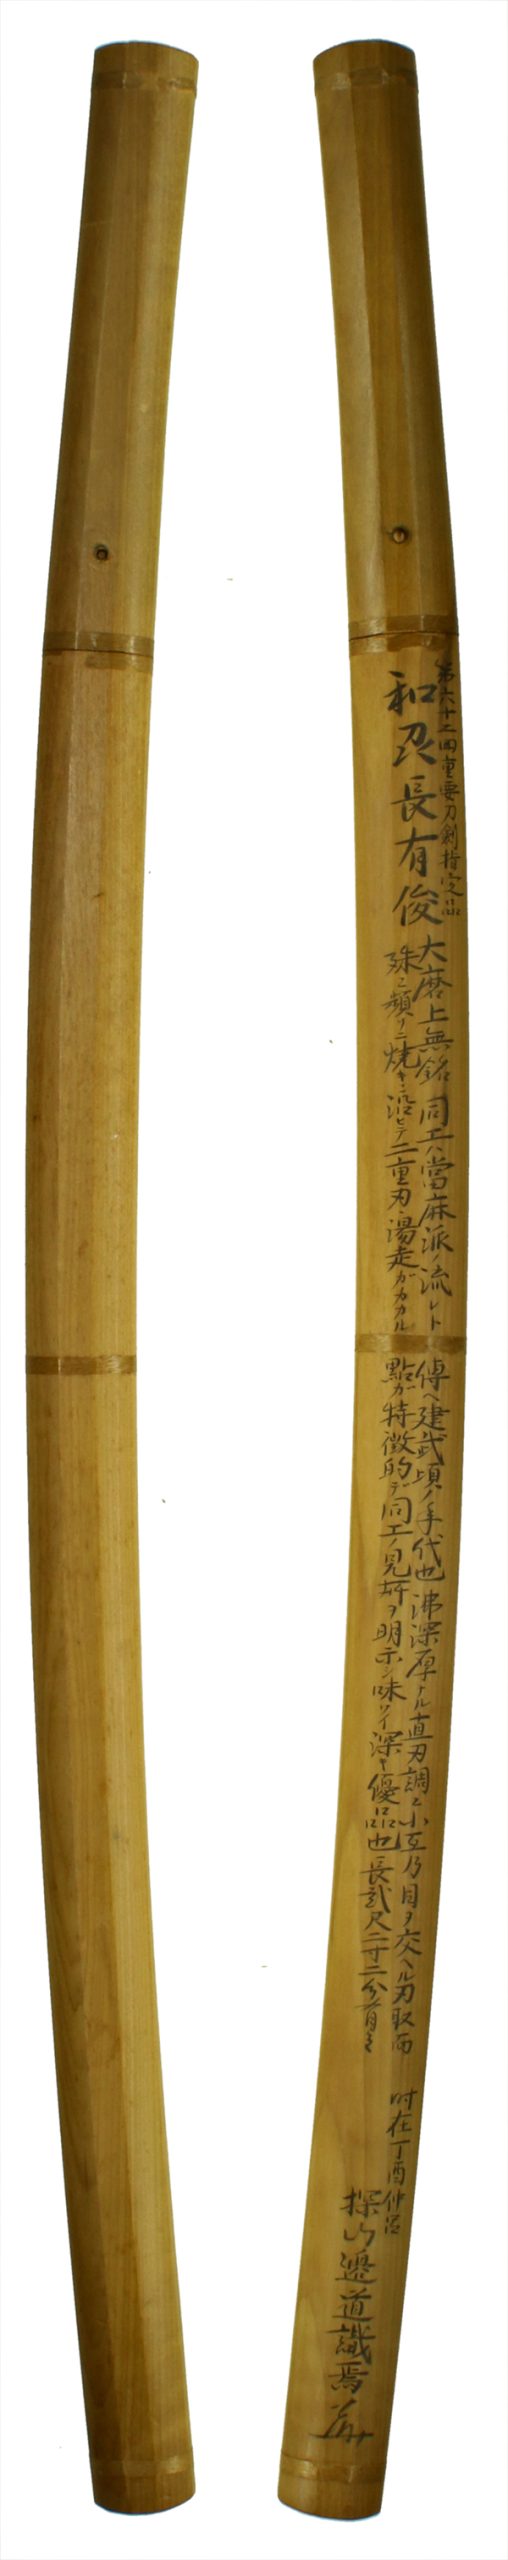 第六十二回重要刀剣指定品
和州長有俊
大磨上無銘 同工ハ當麻派ノ流レト傳ヘ建武頃ノ年代也 沸深厚ナル直刃調ニ小互乃目ヲ交ヘル刃取而
殊ニ頻リニ焼キニ沿ヒテ二重刃湯走ガカカル點ガ特徴的デ同工ノ見所ヲ明示シ味ワイ深キ優品也 長弐尺二寸二分有之
時在丁酉仲呂
探山邉道識焉